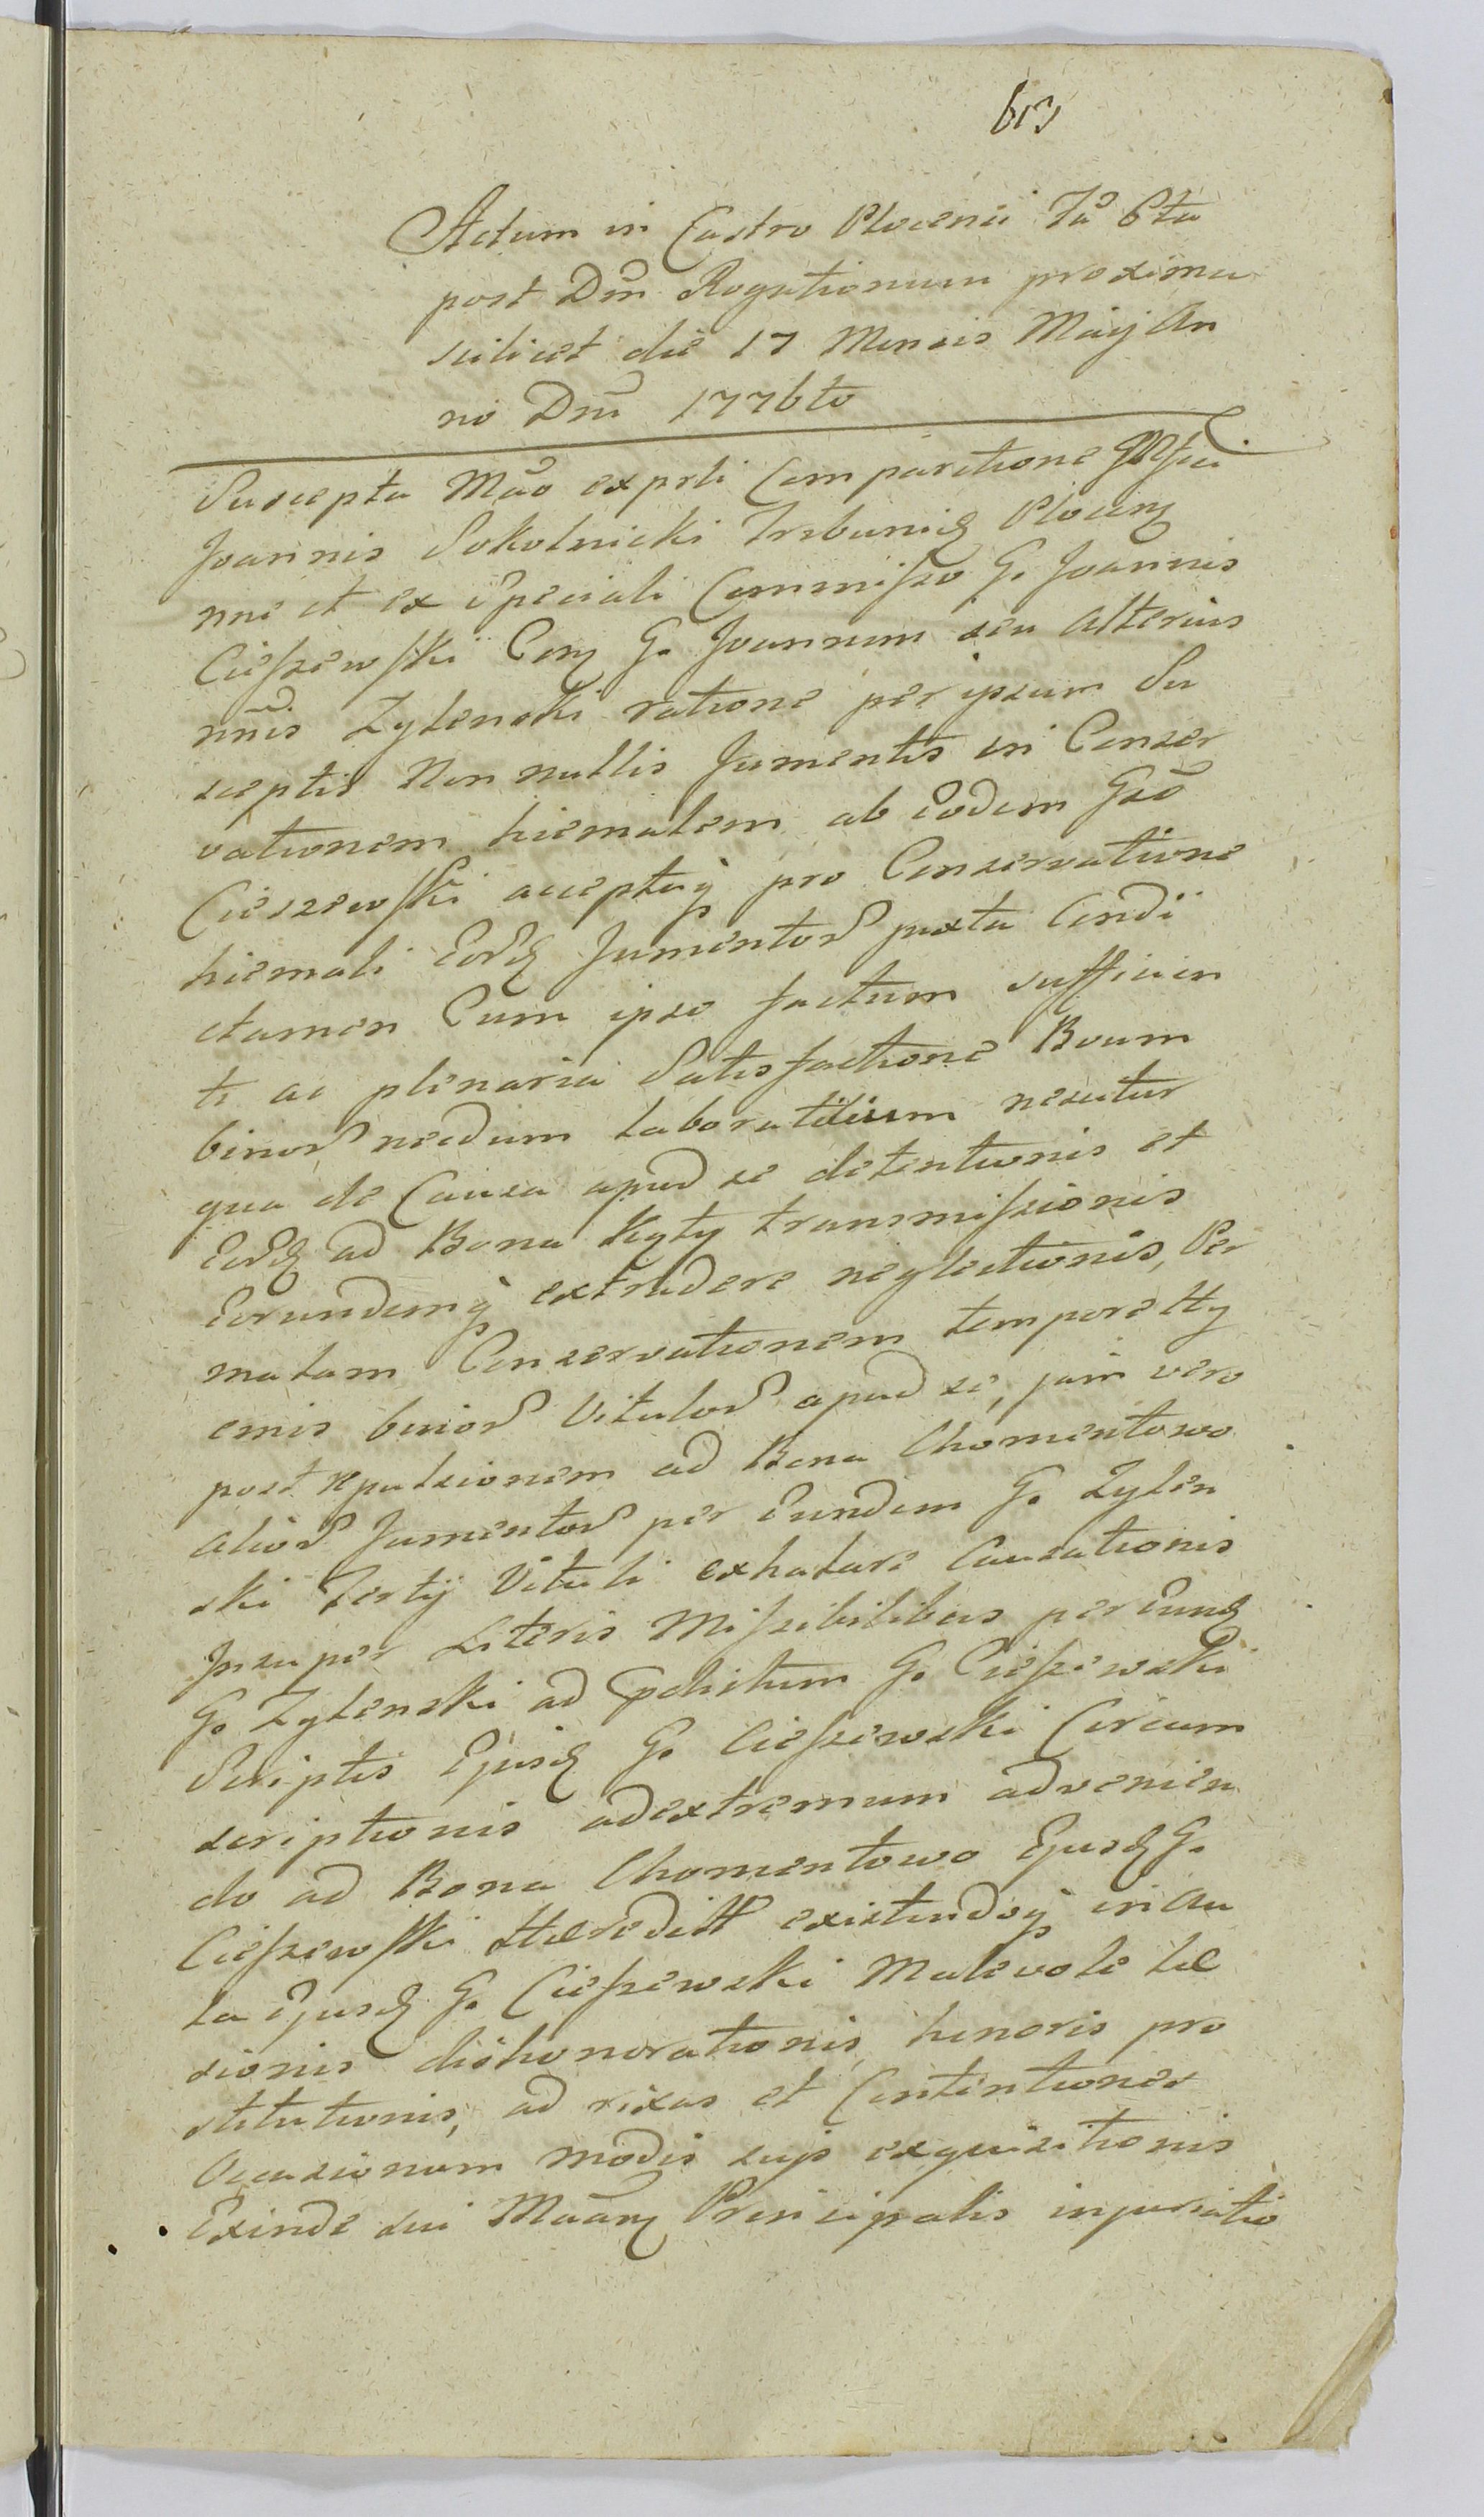 613
Actum in Castro Plocensi Fa 6ta
post Dm̃ Rogationum proxima
scilicet die 17 Mensis Maij An
no Dnĩ 1776to
Suscepta Mãõ exprli Comparitione
Joannis Sokolnicki Trebunid Plocenz
nne et ex Speciali Commisso G. Joannis
Cieszewski Conz G. Joannem seu alterius
nnĩs Zylenski ratione per ipsum Su
sceptis Non nullis Jumentis in Conser
vationem hiemalem ab Eodem Gsõ
Cieszewski acceptisq pro Conservatione
hiemali Eord Jumentor juxta Condi
ctamen Cum ipso factum sufficien
ti ac plenaria Satisfactione Boum
binor necdum laboratilium nescitur
qua de Causa apud se detentionis et
Eord ad Bona transmissionis
Eorundemq extradere neglectionis, Per
malam Conservationem tempore Hy
emis binor Vitulor apud se, jam vero
post repulsionem ad Bona Chomentowo
alior Jumentor per Eundem G. Zylen
ski Tertij Vituli exhalare Causationis
Insuper Literis Missibilibus per Eund
G. Zylenski ad G. Cieszewski
Scriptis Ejusd G. Cieszewski Circum
scriptionis ad extremum advenien
do ad Bona Chomentowo Ejusd G.
Cieszewski Hæredit existendoq in Au
la Ejusd G. Cieszewski Malevole læ
sionis dishonorationis, honoris pro
stitutionis, ad rixas et Contentiones
Occasionem modis sujs exquisitionis
Exinde sui Principalis injuriatio